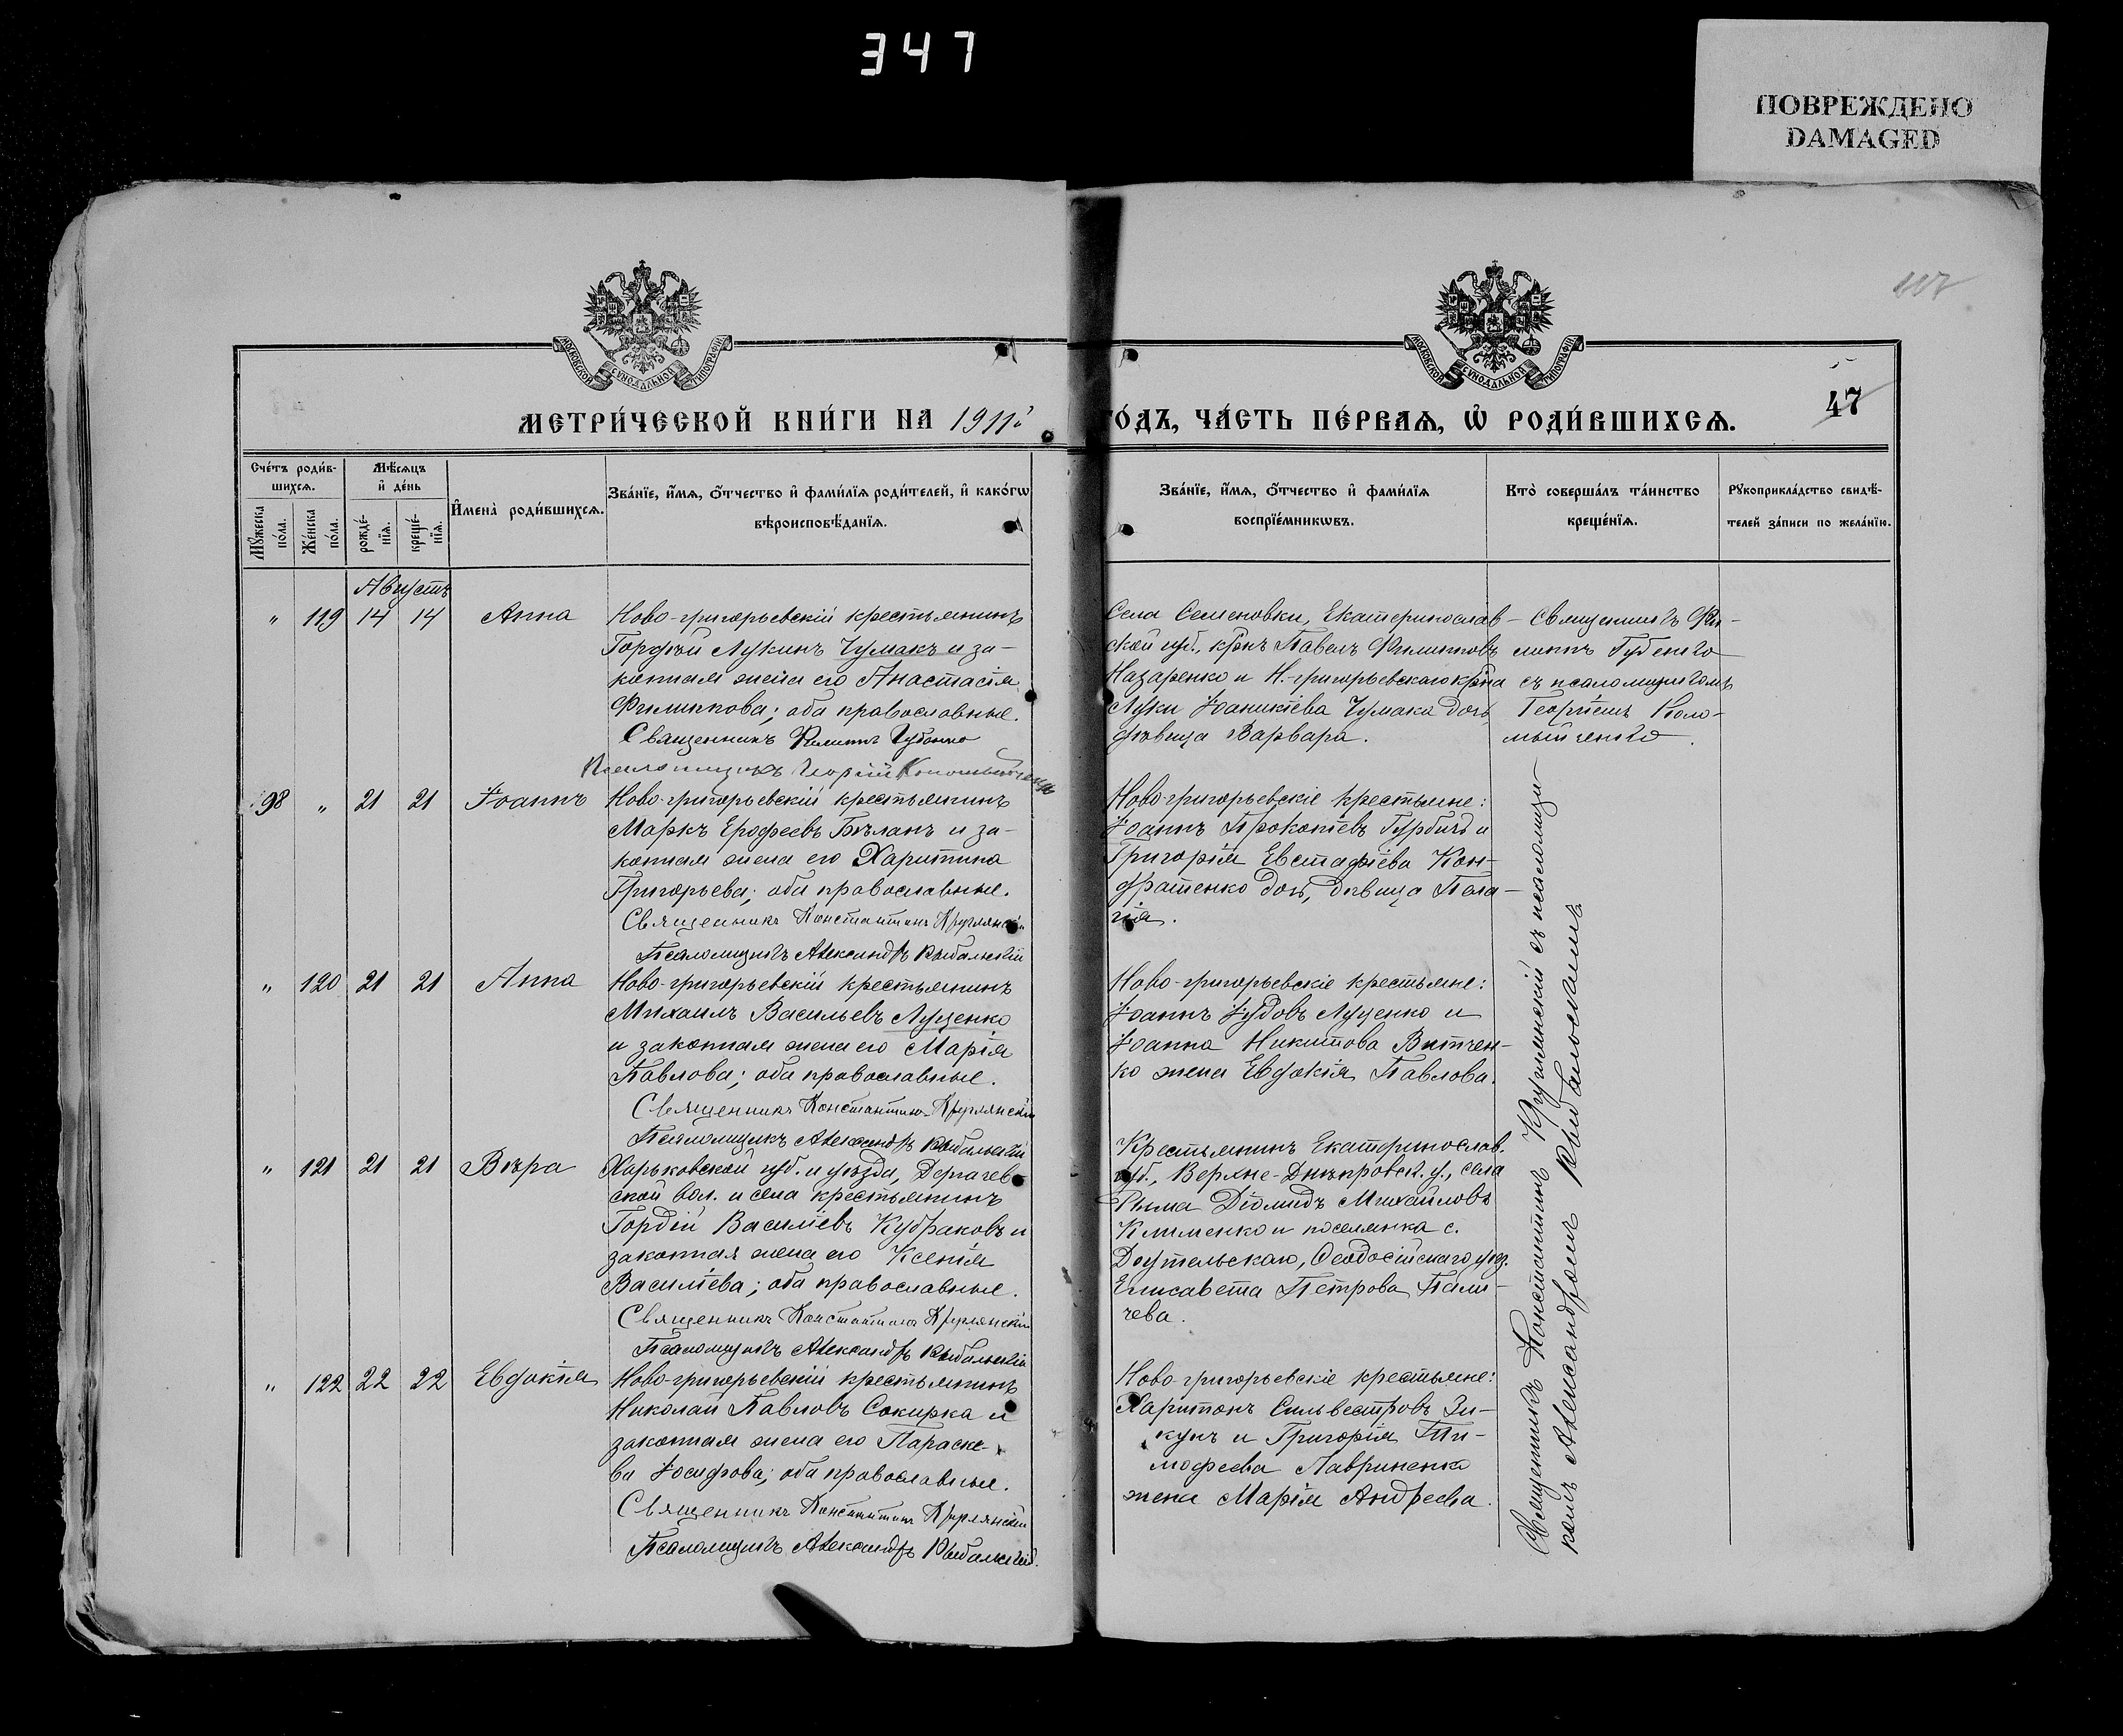 347
ПОВРЕЖДЕНО
DAMAGED
МОСКОВСКОЙ СѴНОДАЛЬНОЙ ТИПОГРАФІИ
МОСКОВСКОЙ СѴНОДАЛЬНОЙ ТИПОГРАФІИ
47
МЕТРИ́ЧЕСКОЙ КНИ́ГИ НА 1911й
ГО́ДЪ, ЧА́СТЬ ПЕ́РВАѦ, Ѿ РОДИ́ВШИХСѦ.
Сче́тъ роди́в-
шихсѧ.
Мꙋ́жеска
по́ла.
Же́нска
по́ла.
Мѣ́сѧцъ
и҆ де́нь
рожде́-
нїѧ.
креще́-
нїѧ.
И҆мена̀ роди́вшихсѧ.
Зва́нїе, и҆́мѧ, о҆́тчество и҆ фами́лїѧ роди́телей, и҆ како́гѡ
вѣроисповѣ́данїѧ.
Зва́нїе, и҆́мѧ, о҆́тчество и҆ фами́лїѧ
воспрїе́мникѡвъ.
Кто̀ соверша́лъ та́инство
креще́нїѧ.
Рꙋкоприкла́дство свидѣ́-
телей за́писи по жела́нїю.
Августъ
" 119 14 14 Анна
Ново-григорьевскій крестьянинъ
Гордѣй Лукинъ Чумакъ и за-
конная жена его Анастасія
Филиппова; оба православные.
Священникъ Филиппъ Губенко
Псаломщикъ Георгій Коломыйченко
Села Семеновки, Екатеринослав-
ской губ., кр-нъ Павелъ Филипповъ
Назаренко и Н.-григорьевскаго кр-на
Луки Іоаникіева Чумака дочь,
дѣвица Варвара.
Священникъ Фи-
липпъ Губенко
съ псаломщикомъ
Георгіемъ Коло-
мыйченко.
98 " 21 21 Іоаннъ
Ново-григорьевскій крестьянинъ
Маркъ Ерофеевъ Бѣланъ и за-
конная жена его Харитина
Григорьева; оба православные.
Священникъ Константинъ Круглянскій
Псаломщикъ Александръ Рыбальскій
Ново-григорьевскіе крестьяне:
Іоаннъ Прокопіевъ Гурбичъ и
Григорія Евстафіева Кон-
дратенко дочь, дѣвица Пела-
гія.
" 120 21 21 Анна
Ново-григорьевскій крестьянинъ
Михаилъ Васильевъ Луценко
и законная жена его Марія
Павлова; оба православные.
Священникъ Константинъ Круглянскій
Псаломщикъ Александръ Рыбальскій
Ново-григорьевскіе крестьяне:
Іоаннъ Іудовъ Луценко и
Іоанна Никитова Витчен-
ко жена Евдокія Павлова.
" 121 21 21 Вѣра
Харьковской губ. и уѣзда, Дергачев-
ской вол. и села крестьянинъ
Гордій Василіевъ Кудраковъ и
законная жена его Ксенія
Василіева; оба православные.
Священникъ Константинъ Круглянскій
Псаломщикъ Александръ Рыбальскій
Крестьянинъ Екатеринослав.
губ., Верхне-Днѣпровск. у., села
Діомидъ Михайловъ
Клименко и поселянка с.
Ѳеодосійскаго уѣз.
Елисавета Петрова Пали-
чева.
" 122 22 22 Евдокія
Ново-григорьевскій крестьянинъ
Николай Павловъ Сокирка и
законная жена его Параске-
ва Іосифова; оба православные.
Священникъ Константинъ Круглянскій
Псаломщикъ Александръ Рыбальскій.
Ново-григорьевскіе крестьяне:
Харитонъ Сильвестровъ Зи-
кунъ и Григорія Ти-
мофеева Лавриненка
жена Марія Андреева.
Священникъ Константинъ Круглянскій съ псаломщи-
комъ Александромъ Рыбальскимъ